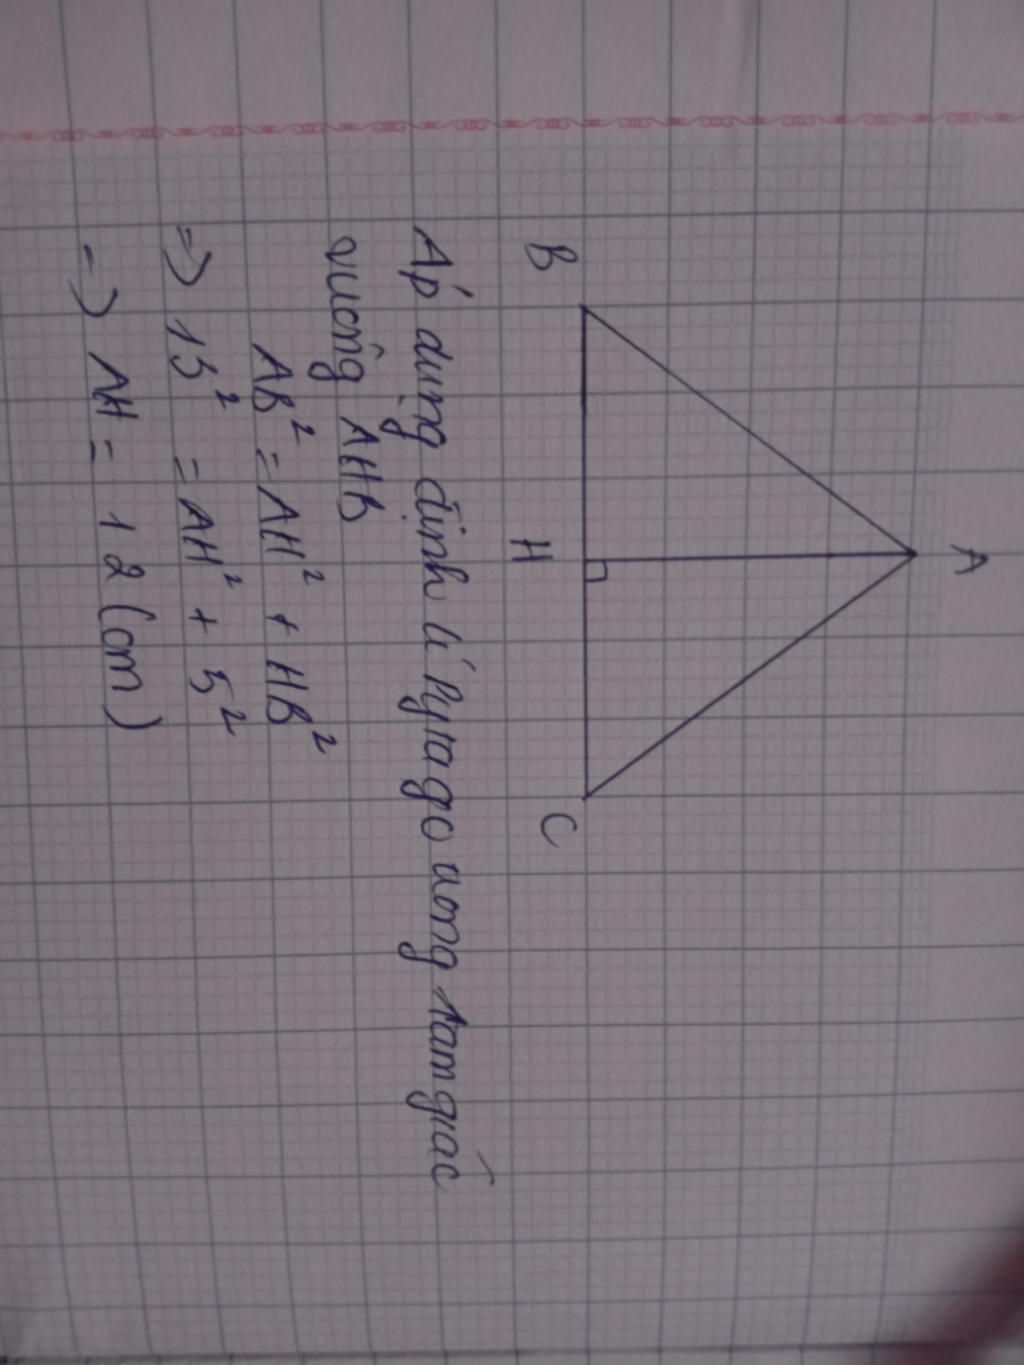 A
B
H
C
Áp dụng định lí Pytago trong tam giác
vuông AHB
AB² = AH² + HB²
=> 13² = AH² + 5²
=> AH = 12 (cm)